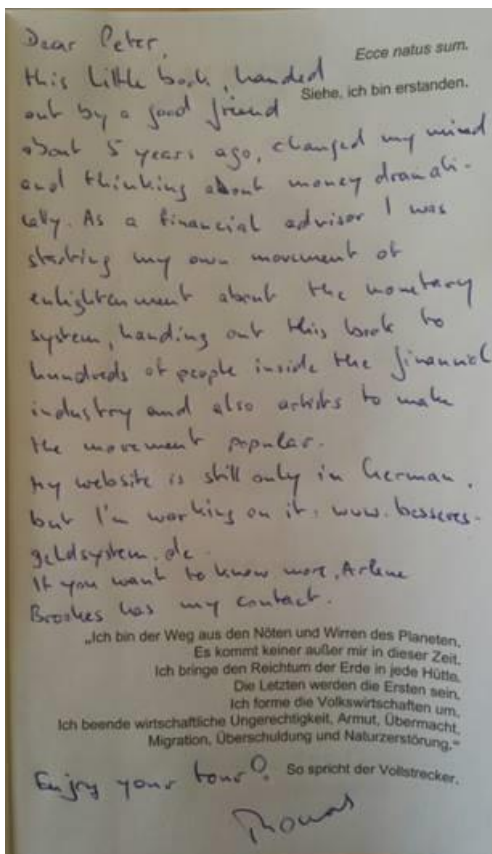 Dear Peter,
Ecce natus sum.
this little book, handed
Siehe, ich bin erstanden.
out by a good friend
about 5 years ago, changed my mind
and thinking about money dramati-
cally. As a financial advisor I was
starting my own movement of
enlightenment about the monetary
system, handing out this book to
hundreds of people inside the financial
industry and also artists to make
the movement popular.
My website is still only in German,
but I'm working on it. www.besseres-
geldsystem.de.
If you want to know more, Arlene
Brookes has my contact.
„Ich bin der Weg aus den Nöten und Wirren des Planeten.
Es kommt keiner außer mir in dieser Zeit.
Ich bringe den Reichtum der Erde in jede Hütte.
Die Letzten werden die Ersten sein.
Ich forme die Volkswirtschaften um.
Ich beende wirtschaftliche Ungerechtigkeit, Armut, Übermacht,
Migration, Überschuldung und Naturzerstörung."
So spricht der Vollstrecker.
Enjoy your tour!
Thomas